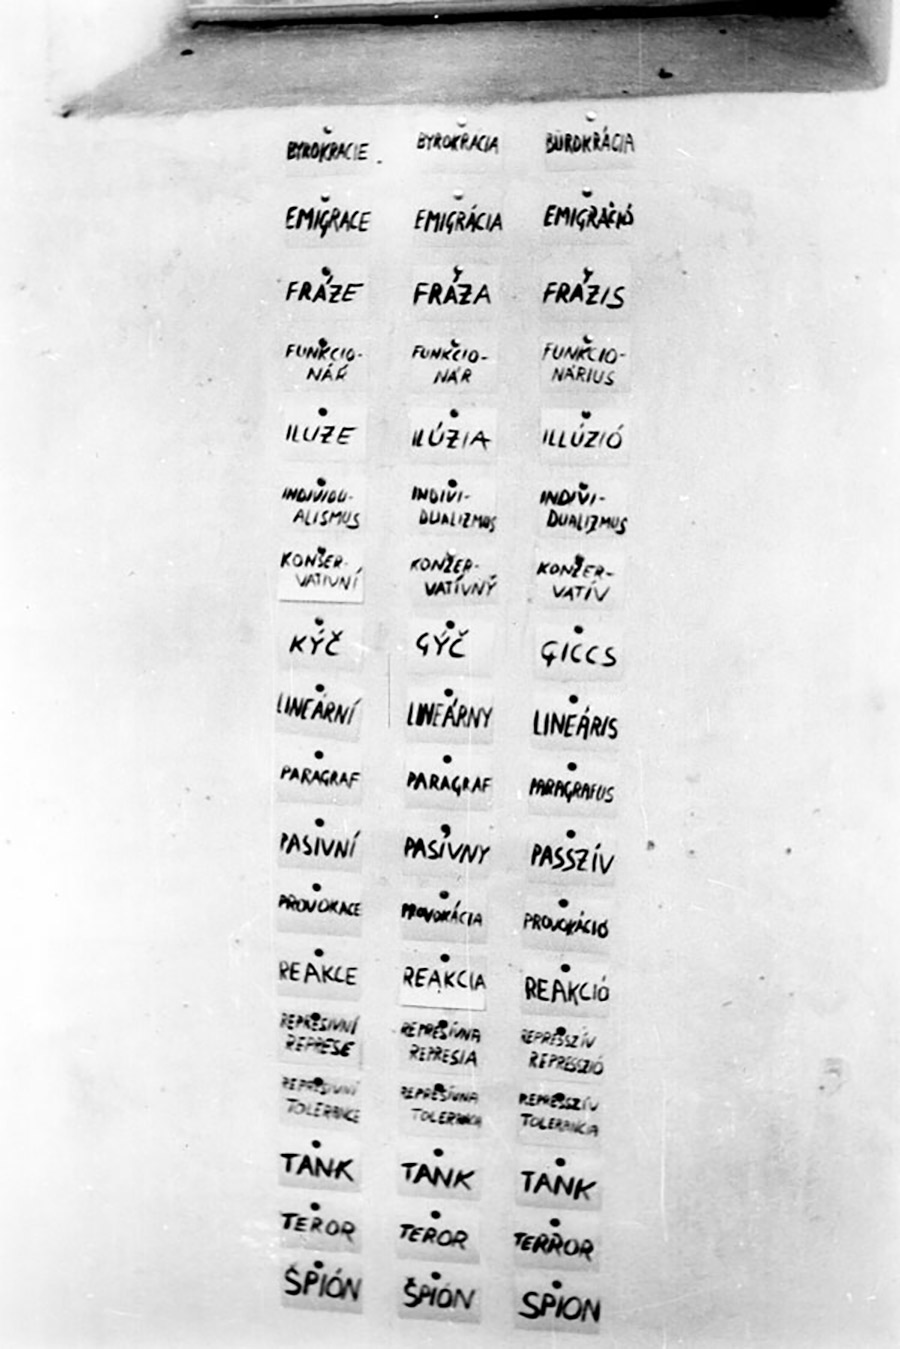 BYROKRACIE BYROKRACIA BÜROKRÁCIA
EMIGRACE EMIGRÁCIA EMIGRÁCIÓ
FRÁZE FRÁZA FRÁZIS
FUNKCIO- FUNKCIO- FUNKCIO-
NÁŘ NÁR NÁRIUS
ILUZE ILÚZIA ILLÚZIÓ
INDIVIDU- INDIVI- INDIVI-
ALISMUS DUALIZMUS DUALIZMUS
KONSER- KONZER- KONZER-
VATIVNÍ VATÍVNÝ VATÍV
KÝČ GÝČ GICCS
LINEÁRNÍ LINEÁRNY LINEÁRIS
PARAGRAF PARAGRAF PARAGRAFUS
PASIVNÍ PASÍVNY PASSZÍV
PROVOKACE PROVOKÁCIA PROVOKÁCIÓ
REAKCE REAKCIA REAKCIÓ
REPRESIVNÍ REPRESÍVNA REPRESSZÍV
REPRESE REPRESIA REPRESSZIÓ
REPRESIVNÍ REPRESÍVNA REPRESSZÍV
TOLERANCE TOLERANCIA TOLERANCIA
TANK TANK TANK
TEROR TEROR TERROR
ŠPIÓN ŠPIÓN SPION